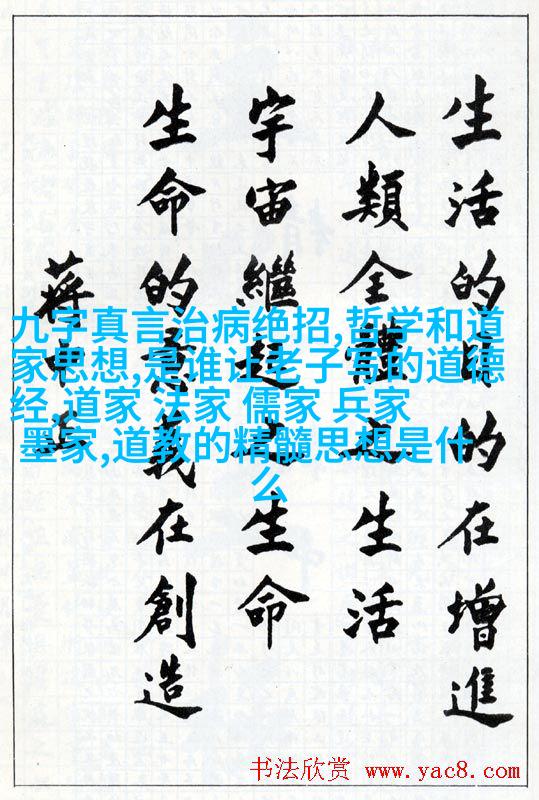 生活的目的在增進
人類全體之生活
宇宙繼起之生命
生命的意義在創造
蔣中正
九字真言治病绝招,哲学和道
家思想,是谁让老子写的道德
经,道家 法家 儒家 兵家
墨家,道教的精髓思想是什
么
书法欣赏 www.yac8.com